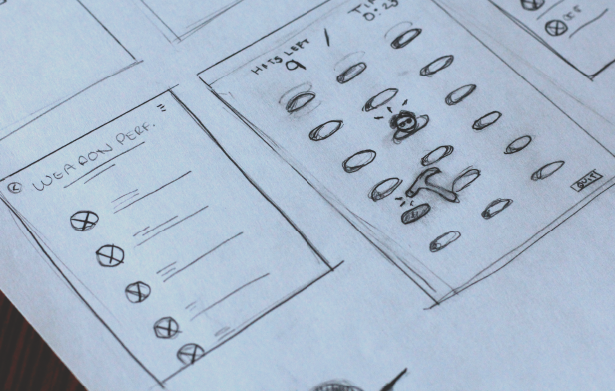 WEAPON PERF.
HITS LEFT
9
0:23
QUIT